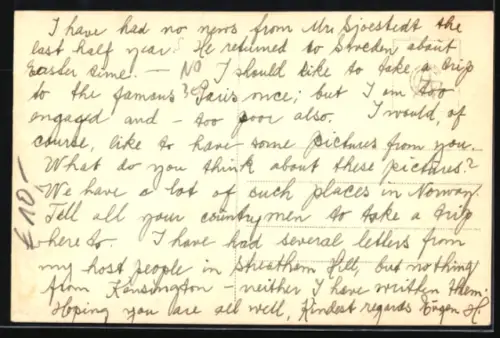 I have had no news from Mr Sjoestedt the
last half year. He returned to Sweden about
Easter time. — No I should like to take a trip
to the famous Paris once; but I am too
engaged and - too poor also. I would, of
course, like to have some pictures from you.
What do you think about these pictures?
We have a lot of such places in Norway.
Tell all your countrymen to take a trip
here to. I have had several letters from
my host people in Streathem Hill, but nothing
from Kensington - neither I have written them.
Hoping you are all well, Kindest regards H.
€ 10,-